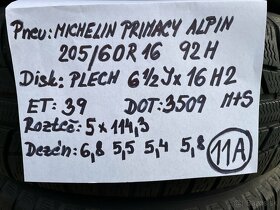 Pneu: MICHELIN PRIMACY ALPIN
205/60 R 16 92 H
Disk: PLECH 6½Jx16 H2
ET: 39 DOT: 3509 M+S
Rozteč: 5 x 114,3
Dezén: 6,8 5,5 5,4 5,8
11A